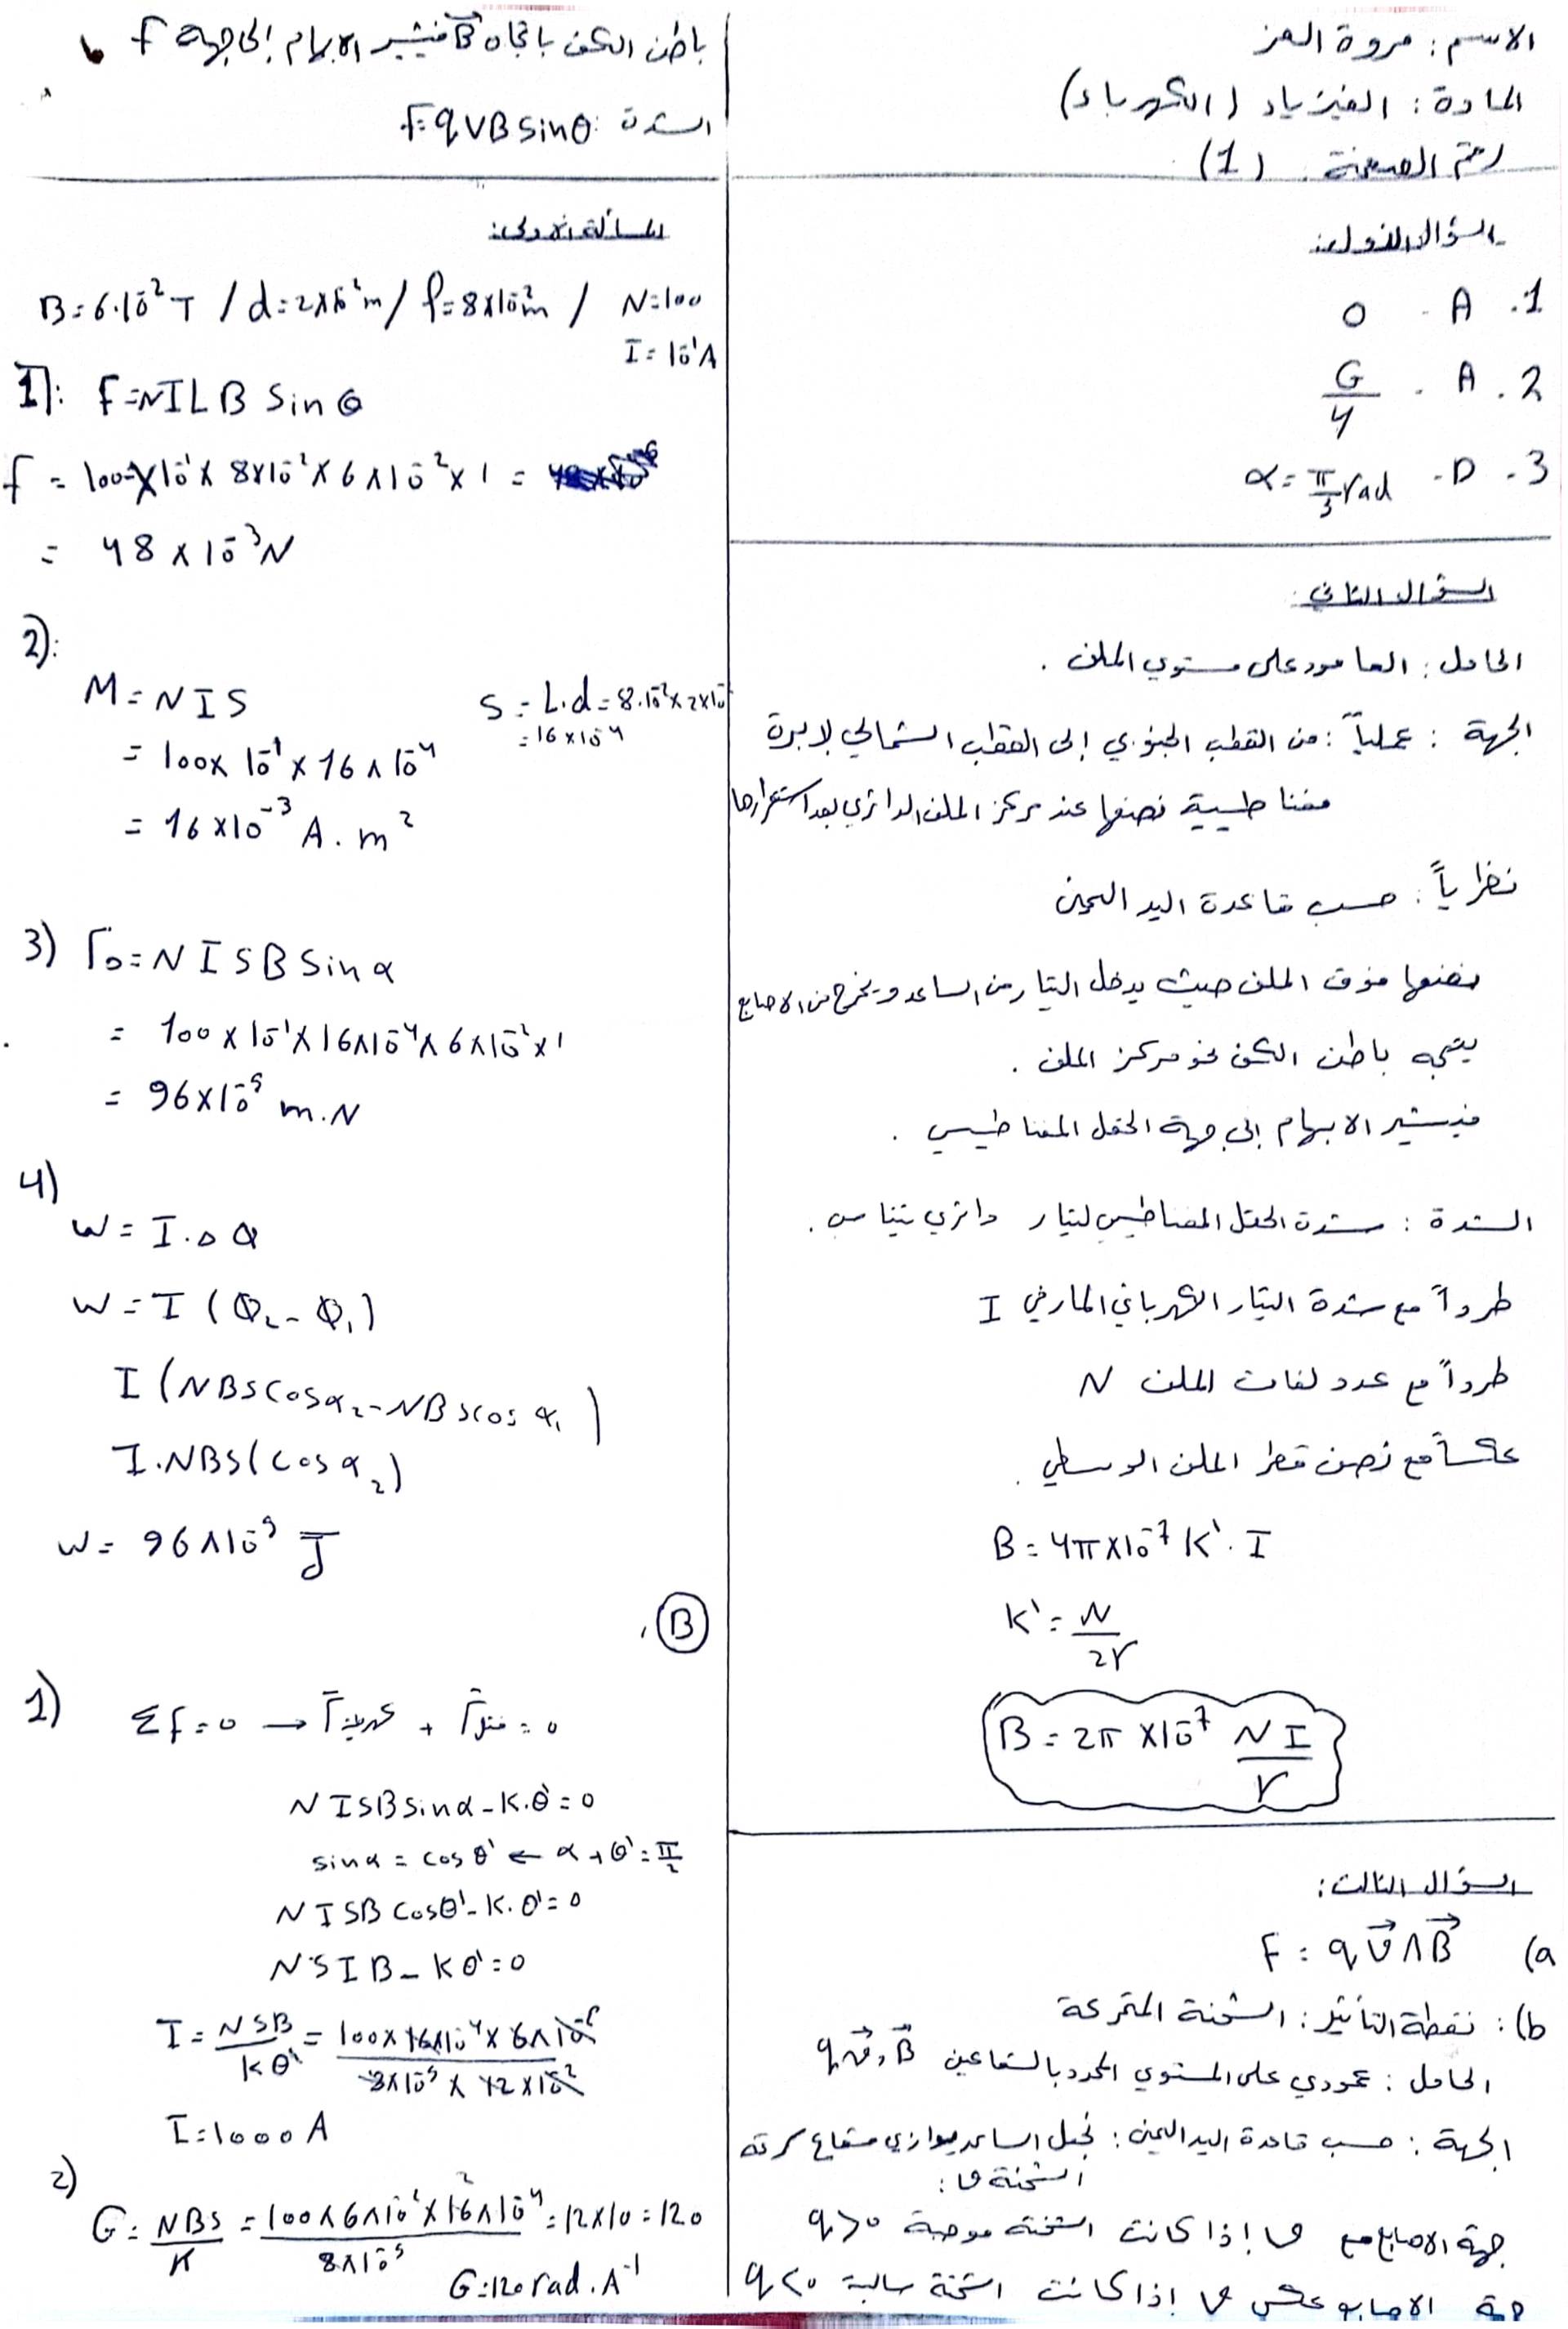 الاسم : مروة العز
المادة : الفيزياء (الكهرباء)
رقم الصفحة : (1)
السؤال الأول:
1. A - 0
2. A - G/4
3- D- α = π/3 rad
السؤال الثاني:
الحامل : العامود على مستوي الملف .
الجهة : عملياً : من القطب الجنوبي إلى القطب الشمالي لابرة
مغناطيسية نضعها عند مركز الملف الدائري بعد استقرارها
نظرياً : حسب قاعدة اليد اليمنى
نضعها فوق الملف حيث يدخل التيار من الساعد ويخرج من الاصابع
يتجه باطن الكف نحو مركز الملف .
فيشير الابهام إلى جهة الحقل المغناطيسي .
الشدة : شدة الحقل المغناطيسي لتيار دائري تتناسب .
طرداً مع شدة التيار الكهربائي المار في I
طرداً مع عدد لفات الملف N
عكساً مع نصف قطر الملف الوسطي .
B = 4π×10⁻⁷ K' . I
K' = N/2r
B = 2π ×10⁻⁷ NI/r
السؤال الثالث:
a) F = q v⃗ ∧ B⃗
b) : نقطة التأثير : الشحنة المتحركة
الحامل : عمودي على المستوي المحدد بالشعاعين q v⃗ , B⃗
الجهة : حسب قاعدة اليد اليمنى : نجعل الساعد يوازي شعاع سرعة
الشحنة v :
جهة الاصابع مع v إذا كانت الشحنة موجبة q>0
جهة الاصابع عكس v إذا كانت الشحنة سالبة q<0
باطن الكف باتجاه B⃗ فيشير الابهام إلى جهة F
الشدة : F = qVB sinθ
المسألة الاولى:
B = 6.10⁻² T / d = 2×10⁻² m / L = 8×10⁻² m / N=100
I = 10⁻¹ A
1): F = NILB sin θ
F = 100×10⁻¹× 8×10⁻²×6×10⁻²×1 =
= 48 × 10⁻³ N
2):
M = NIS S = L.d = 8.10⁻²×2×10⁻²
= 100× 10⁻¹ × 16×10⁻⁴ = 16×10⁻⁴
= 16×10⁻³ A.m²
3) Γ₀ = NISB sin α
= 100×10⁻¹×16×10⁻⁴×6×10⁻²×1
= 96×10⁻⁵ m.N
4)
W = I.ΔΦ
W = I (Φ₂ - Φ₁)
I (NBS cos α₂ - NBS cos α₁)
I.NBS(cos α₂)
W = 96×10⁻⁵ J
B
1) Σf=0 → Γ كهربية + Γ فتل = 0
NISB sin α - K.θ' = 0
sin α = cos θ' ← α + θ' = π/2
NISB cos θ' - K.θ' = 0
NSIB - Kθ' = 0
I = NSB/Kθ' = 100×16×10⁻⁴×6×10⁻²/8×10⁻⁵×12×10⁻²
I = 1000 A
2)
G = NBS/K = 100×6×10⁻²×16×10⁻⁴/8×10⁻⁵ = 12×10 = 120
G = 120 rad.A⁻¹